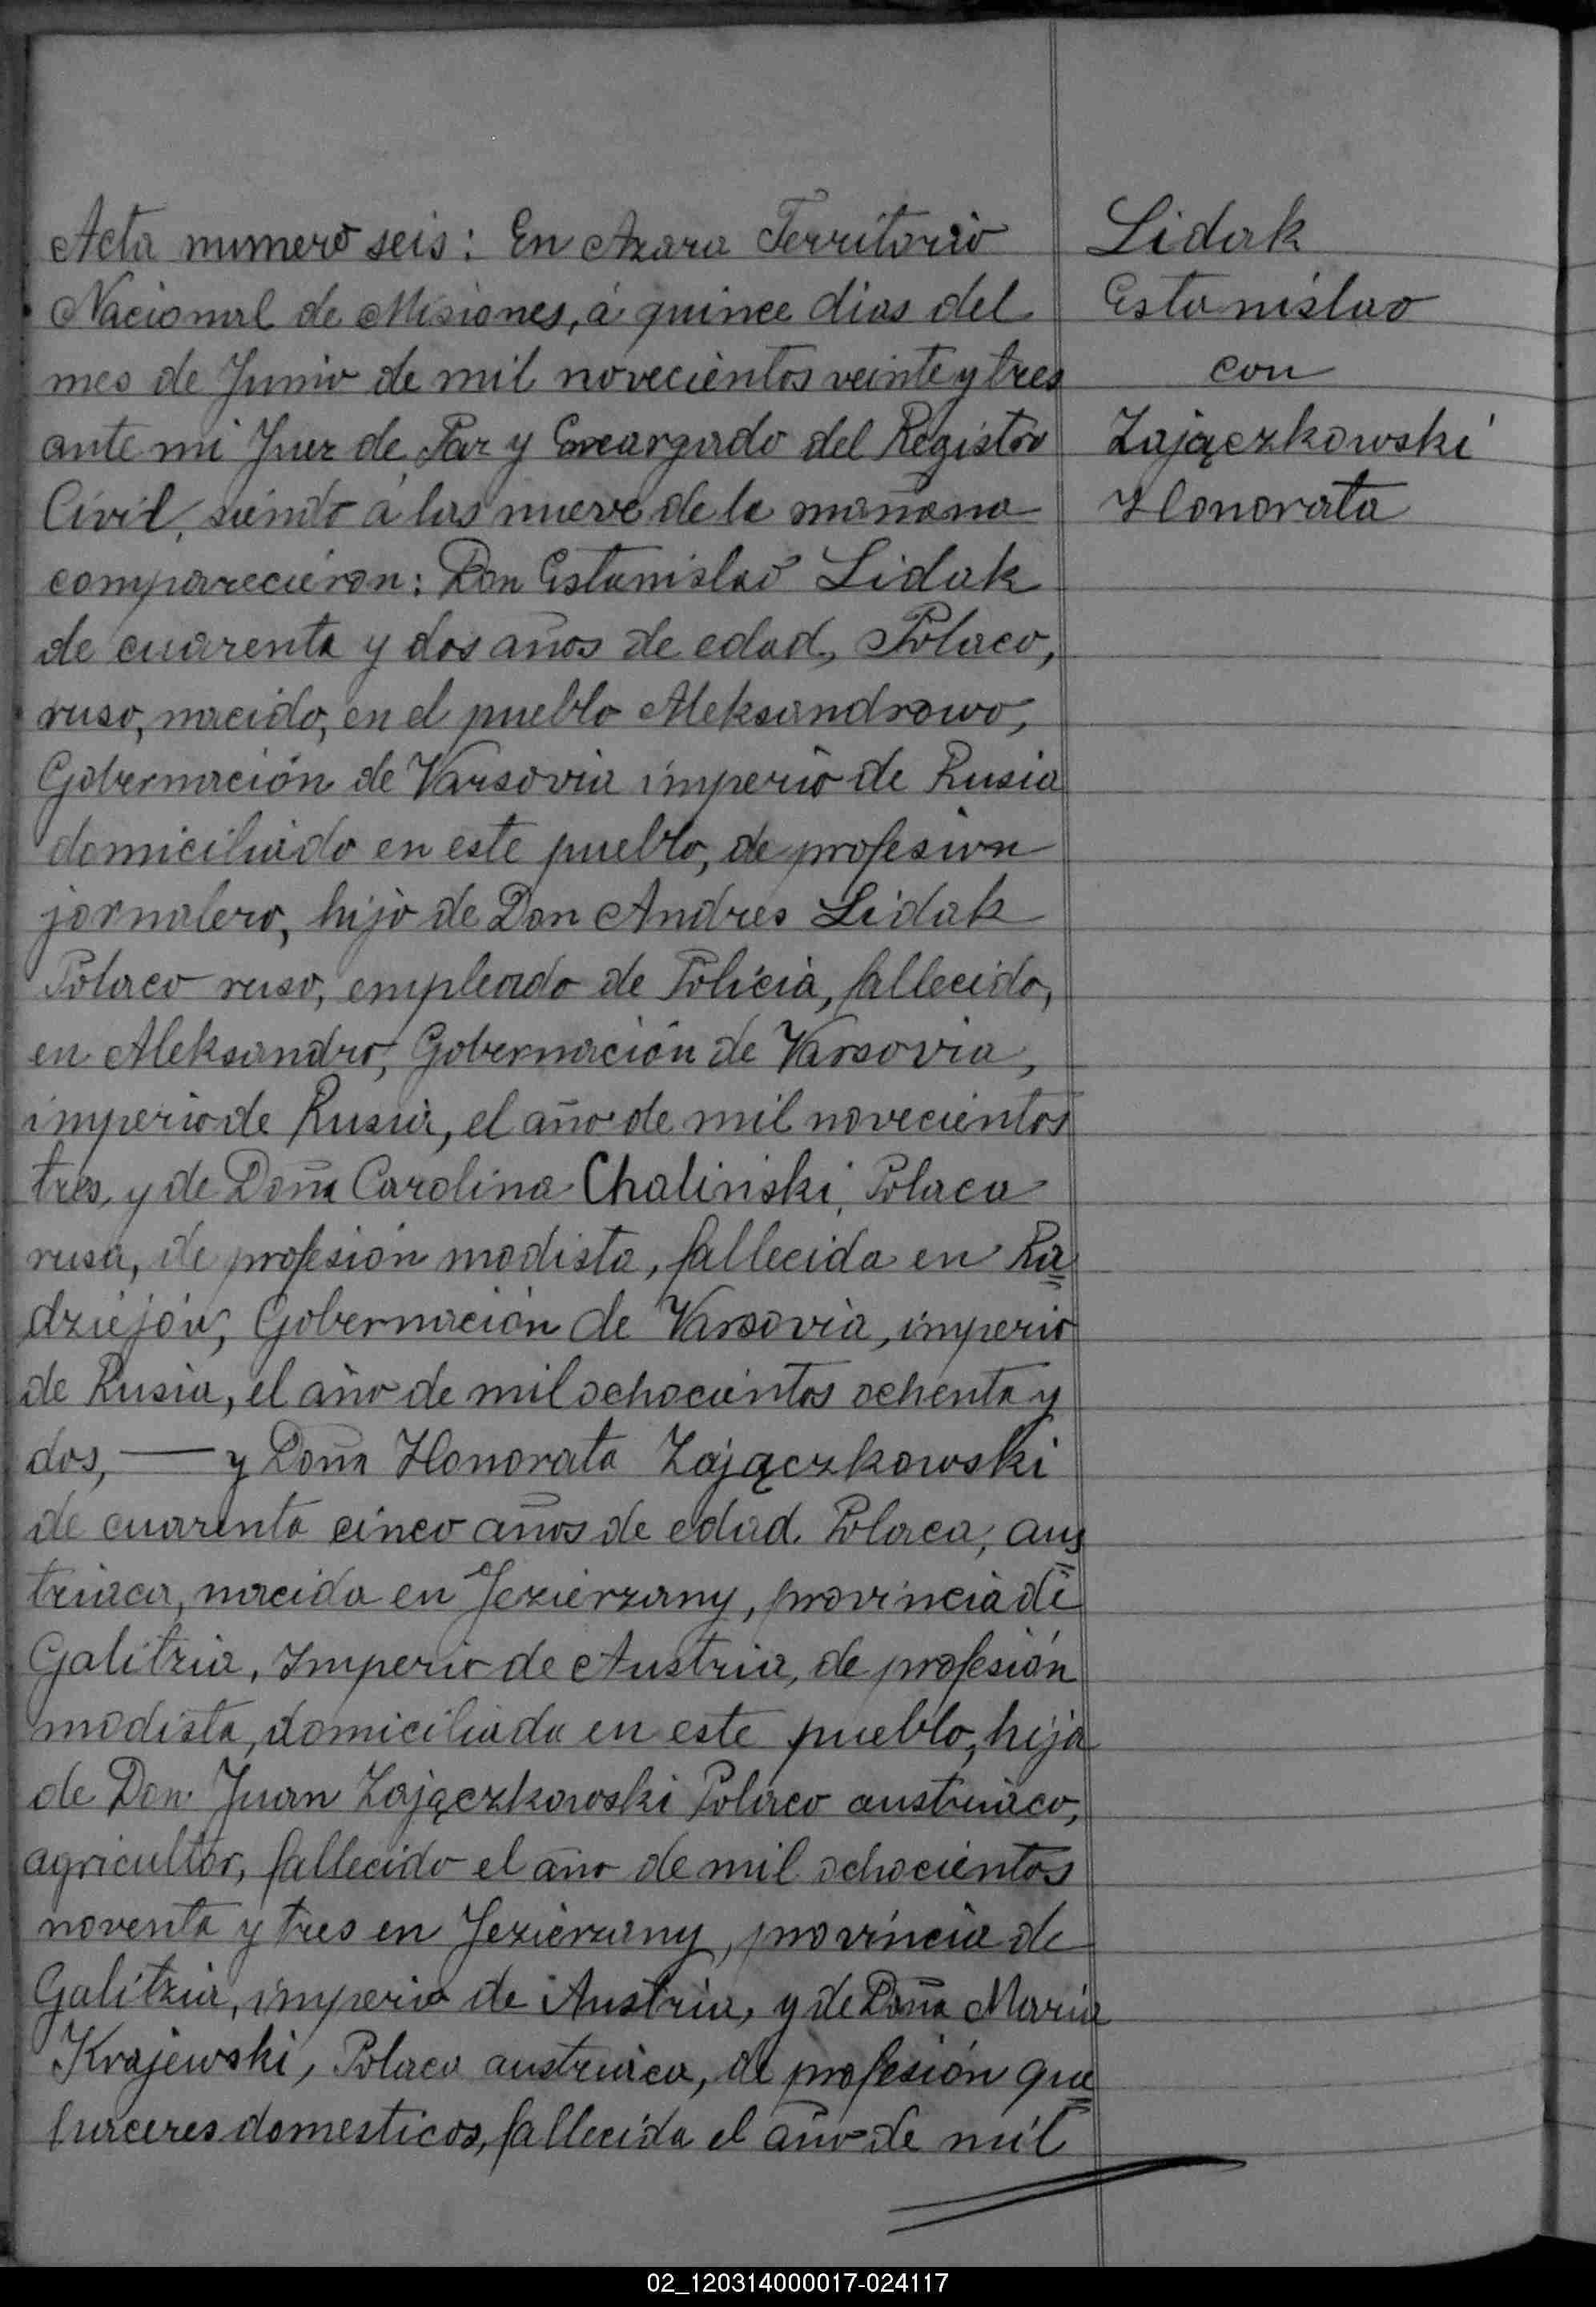 Acta numero seis: En Azara Territorio
Nacional de Misiones, á quince dias del
mes de Junio de mil novecientos veinte y tres
ante mi Juez de Paz y Encargado del Registro
Civil, siendo á las nueve de la mañana
comparecieron: Don Estanislao Lidak
de cuarenta y dos años de edad, Polaco,
ruso, nacido, en el pueblo Aleksandrowo,
Gobernación de Varsovia imperio de Rusia
domiciliado en este pueblo, de profesion
jornalero, hijo de Don Andres Lidak
Polaco ruso, empleado de Policia, fallecido,
en Aleksandro, Gobernación de Varsovia,
imperio de Rusia, el año de mil novecientos
tres, y de Doña Carolina Chalinski, Polaca
rusa, de profesión modista, fallecida en Ra=
dziejów, Gobernación de Varsovia, imperio
de Rusia, el año de mil ochocientos ochenta y
dos, — y Doña Honorata Zajączkowski
de cuarenta cinco años de edad. Polaca, aus=
triaca, nacida en Jezierzany, provincia de
Galitzia, Imperio de Austria, de profesión
modista, domiciliada en este pueblo, hija
de Don Juan Zajączkowski Polaco austriaco,
agricultor, fallecido el año de mil ochocientos
noventa y tres en Jezierzany, provincia de
Galitzia, imperio de Austria, y de Doña Maria
Krajewski, Polaca austriaca, de profesión que=
haceres domesticos, fallecida el año de mil
Lidak
Estanislao
con
Zajączkowski
Honorata
02_120314000017-024117